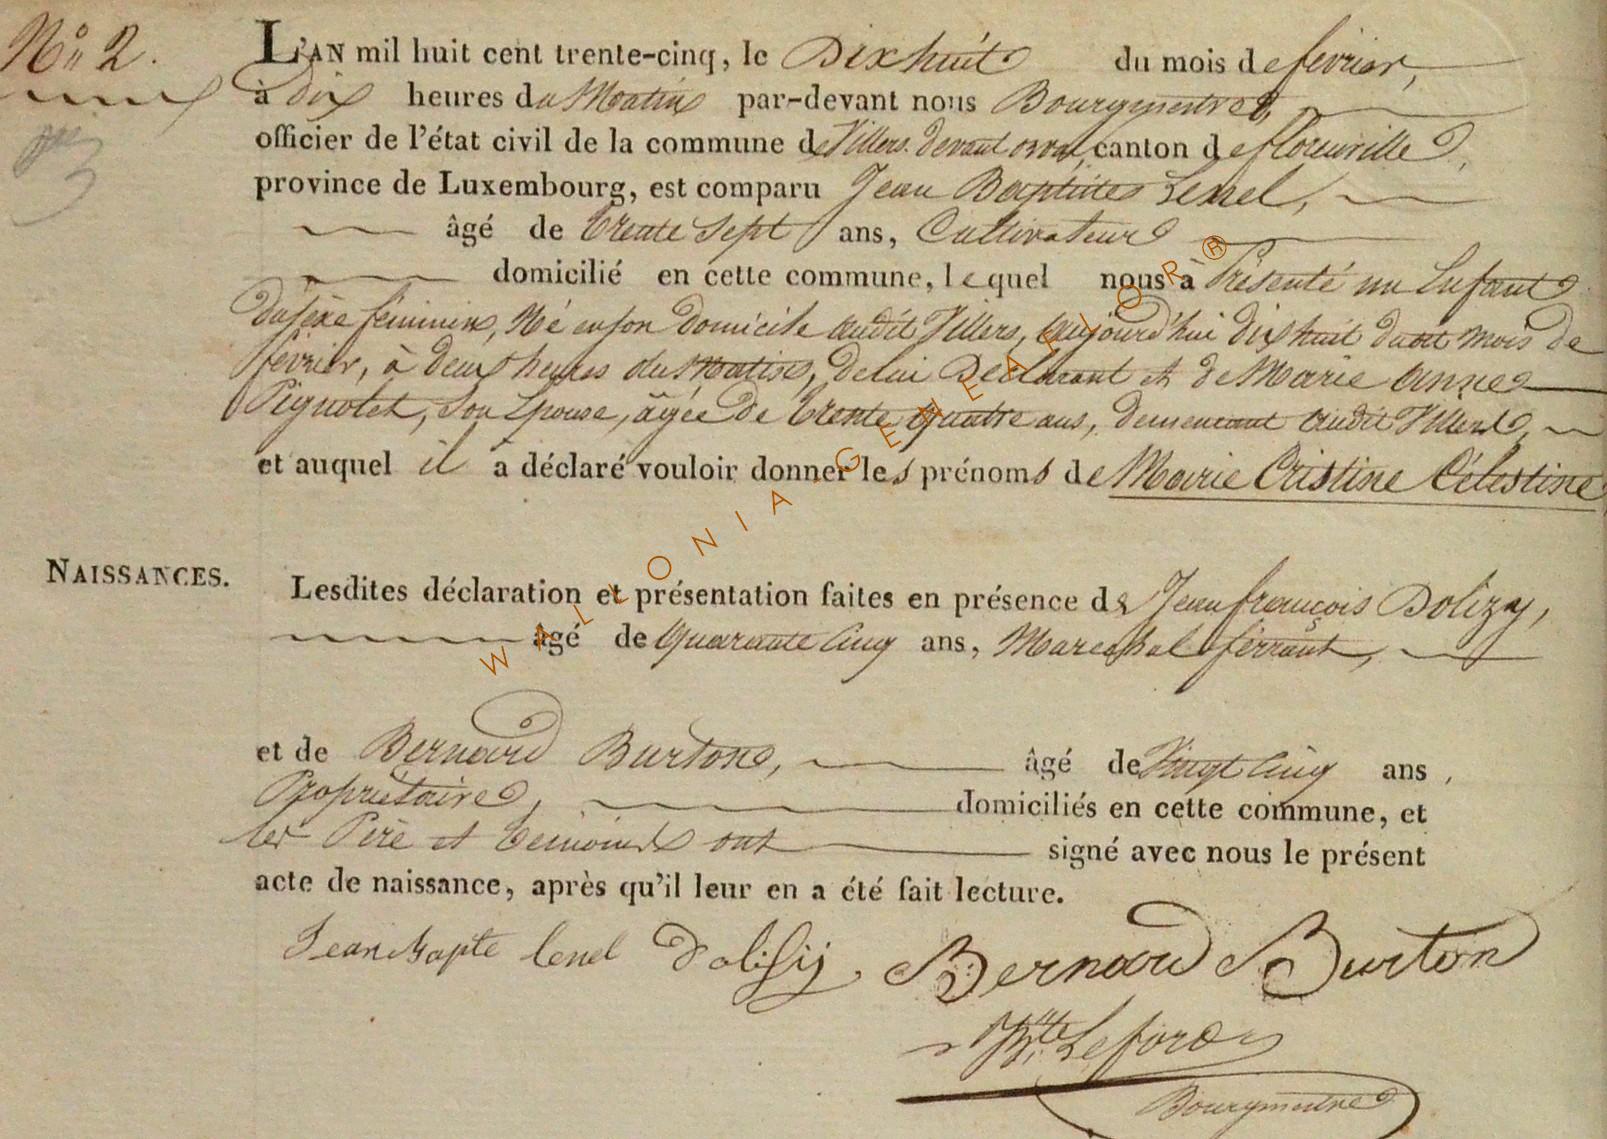 N° 2.
L'AN mil huit cent trente-cinq, le Dix huit du mois de février,
à Dix heures du Matin par-devant nous Bourgmestre,
officier de l'état civil de la commune de Villers devant orval, canton de florenville,
province de Luxembourg, est comparu Jean Baptiste Lenel,
âgé de trente sept ans, Cultivateur
domicilié en cette commune, lequel nous à Présenté un Enfant
du sexe féminin, Né en son Domicile audit Villers, aujourd'hui dix huit dudit mois de
février, à deux heures du Matin, de lui Déclarant et de Marie Anne
Pignolet, son Epouse, âgée de trente quatre ans, demeurant audit Villers,
et auquel il a déclaré vouloir donner les prénoms de Marie Cristine Célestine
NAISSANCES.
Lesdites déclaration et présentation faites en présence de Jean françois Dolizy,
âgé de Quarante cinq ans, Marechal ferrant,
et de Bernard Burton, âgé de Vingt cinq ans,
Propriétaire, domiciliés en cette commune, et
les Père et témoins ont signé avec nous le présent
acte de naissance, après qu'il leur en a été fait lecture.
Jean Bapte lenel Dolisij Bernard Burton
Bourgmestre
WALLONIA-GENEALOR®